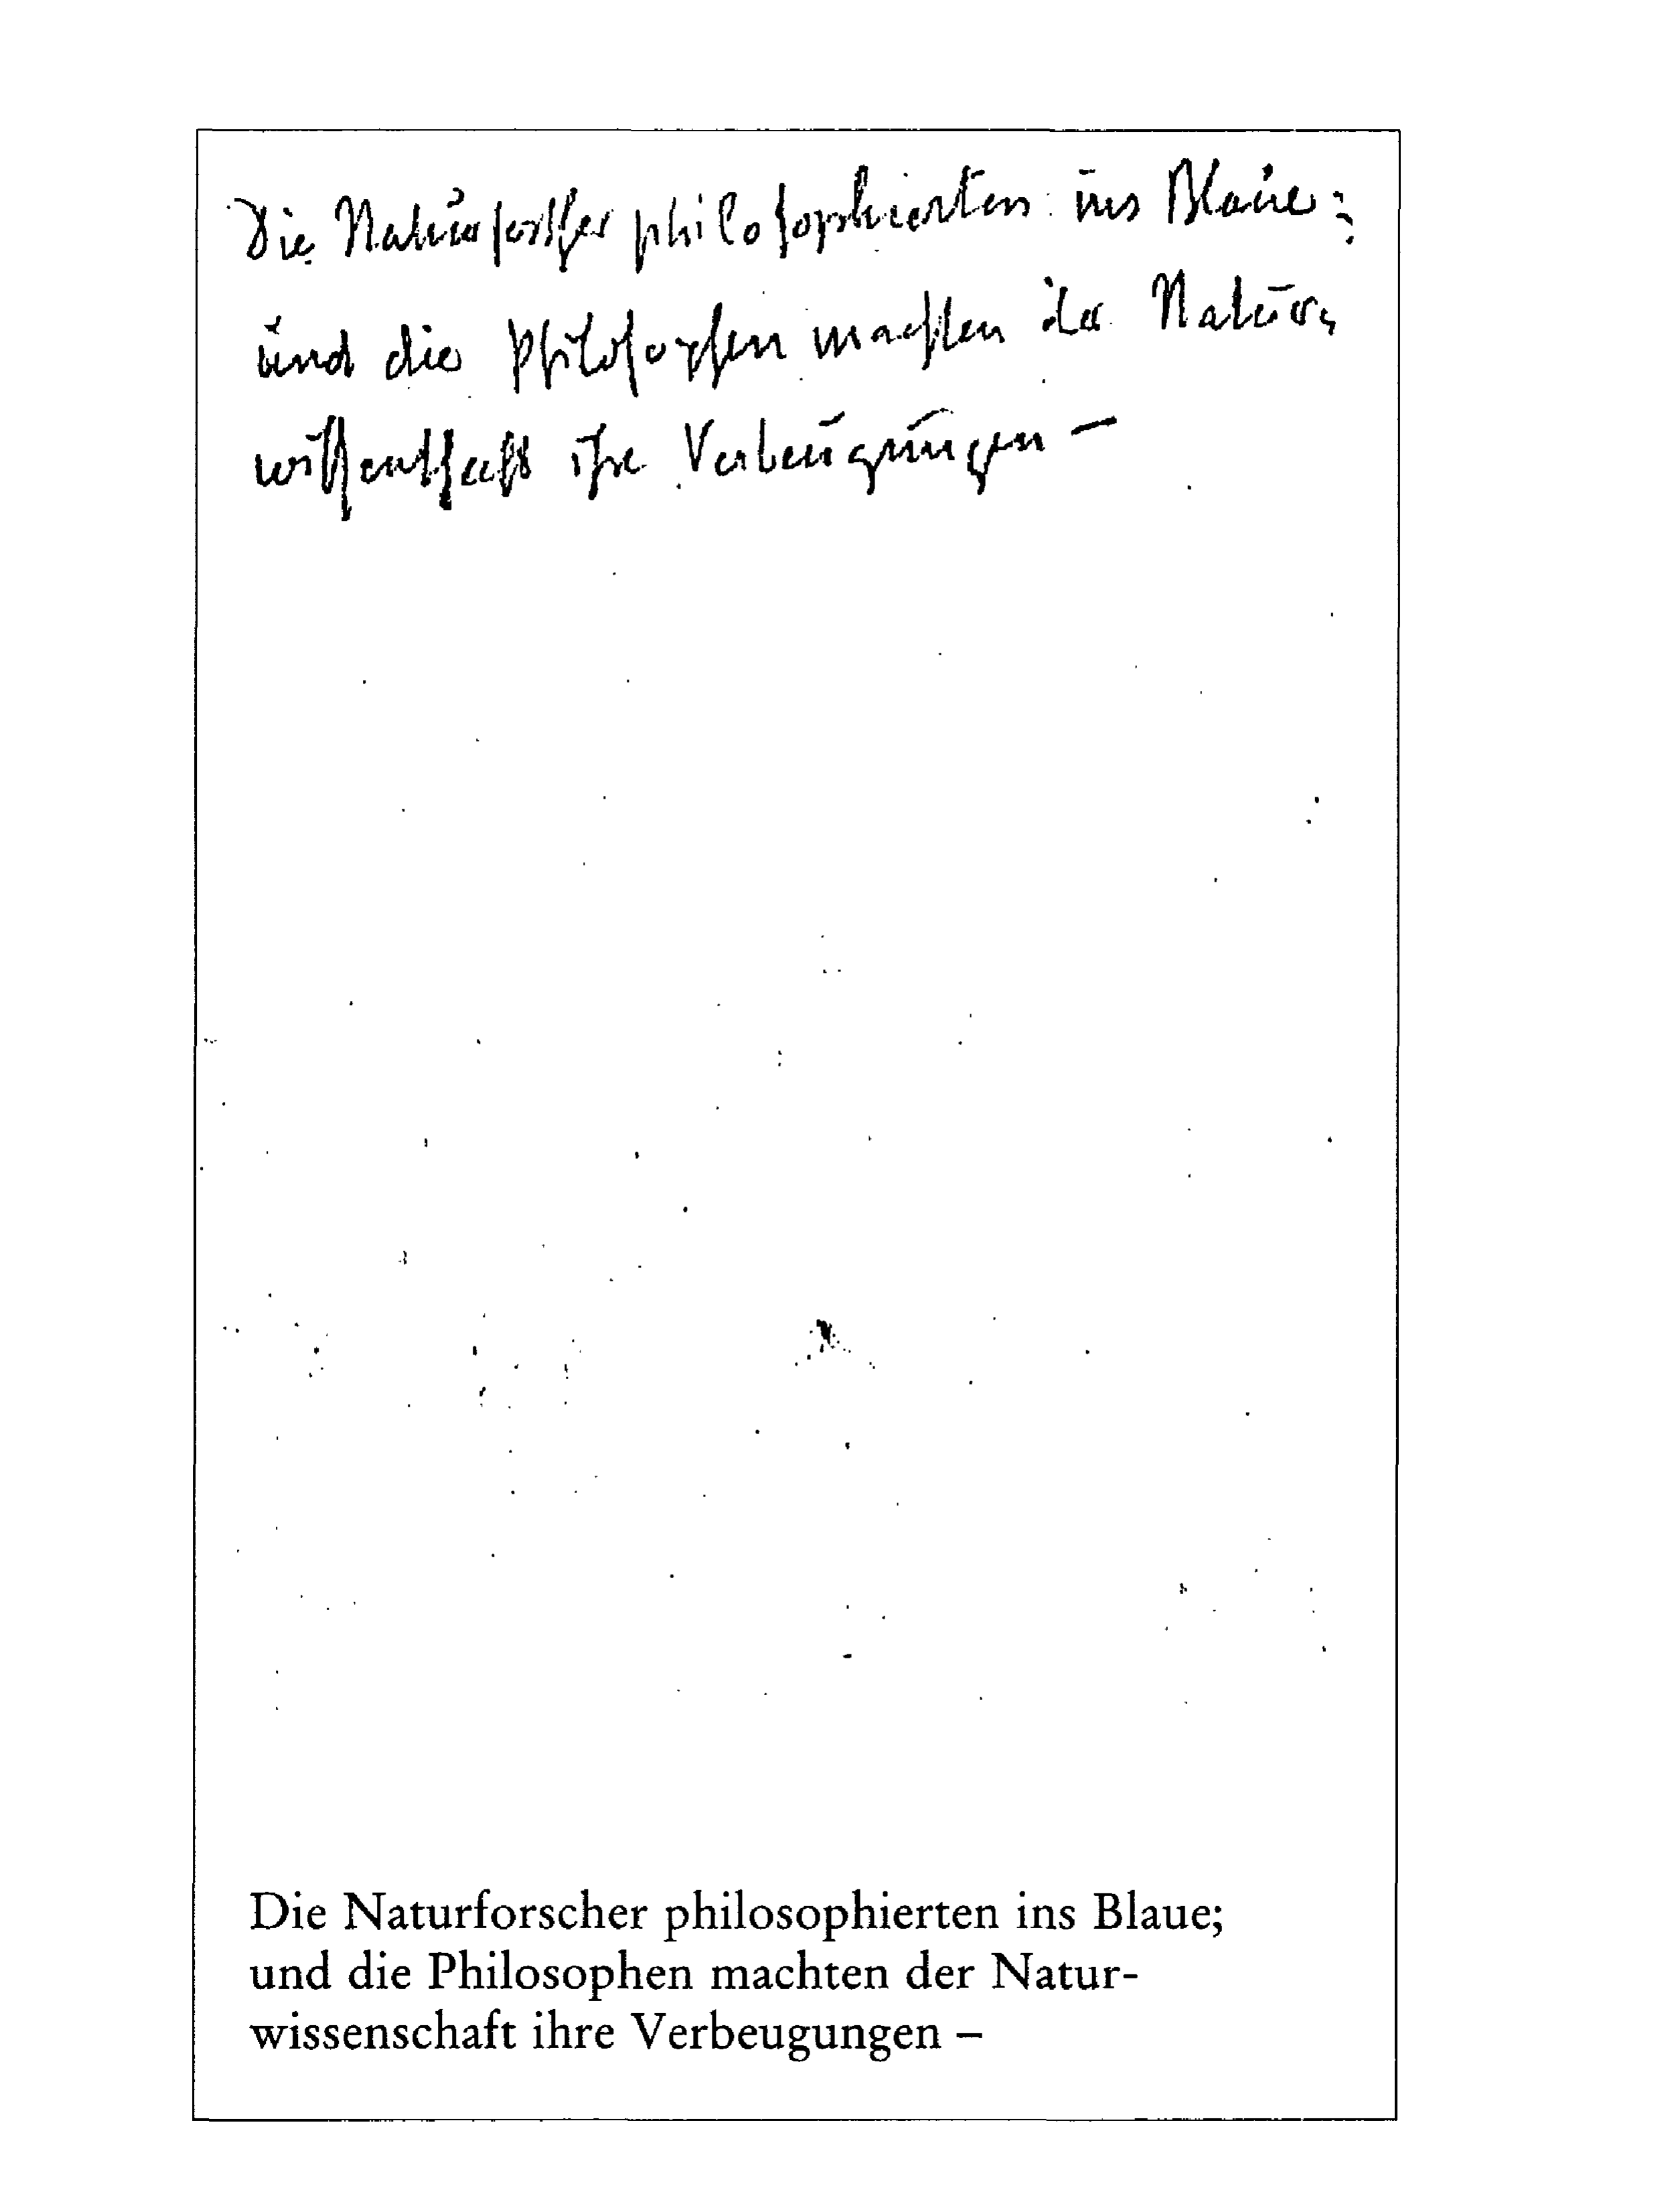 Die Naturforscher philosophierten ins Blaue;
und die Philosophen machten der Natur-
wissenschaft ihre Verbeugungen –
Die Naturforscher philosophierten ins Blaue;
und die Philosophen machten der Natur-
wissenschaft ihre Verbeugungen –